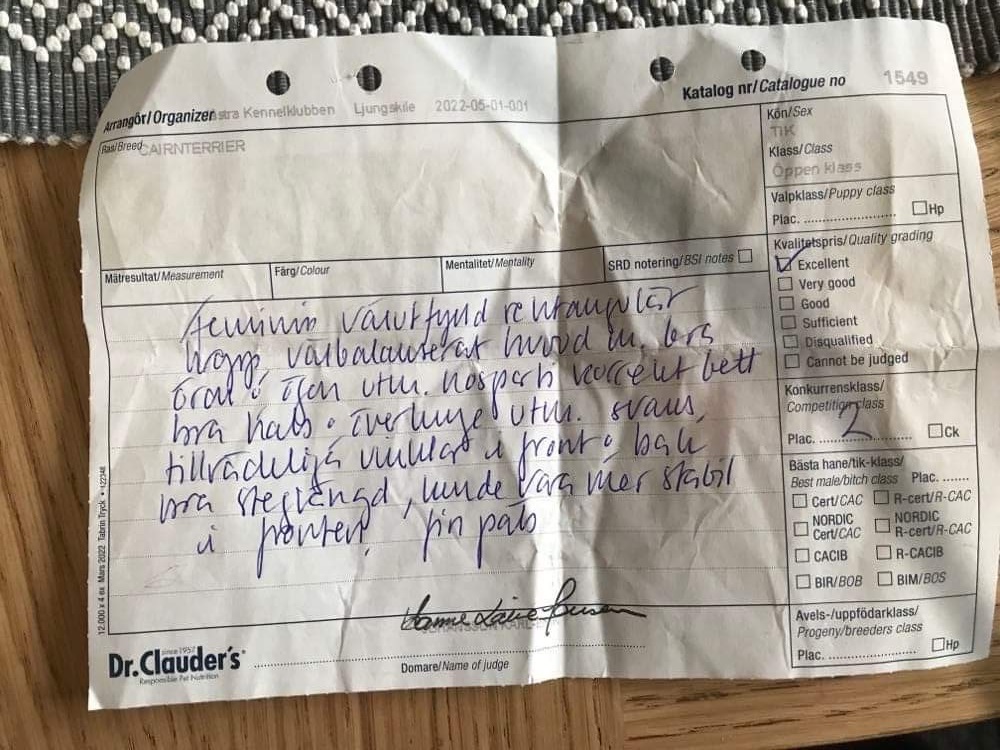 Katalog nr/Catalogue no 1549
Arrangör/Organizer stra Kennelklubben Ljungskile 2022-05-01-001
Ras/Breed CAIRNTERRIER
Kön/Sex
TIK
Klass/Class
Öppen klass
Valpklass/Puppy class
Plac. Hp
Mätresultat/Measurement Färg/Colour Mentalitet/Mentality SRD notering/BSI notes
Kvalitetspris/Quality grading
Excellent
Very good
Good
Sufficient
Disqualified
Cannot be judged
feminin välutfylld rektangulär
kropp, välbalanserat huvud m. bra
öron o ögon utm. nosparti korrekt bett
bra hals o överlinje utm. svans,
tillräckliga vinklar i front o bak
bra steglängd, kunde vara mer stabil
i fronten, fin päls
Konkurrensklass/
Competition class
Plac. 2 Ck
Bästa hane/tik-klass/
Best male/bitch class Plac.
Cert/CAC R-cert/R-CAC
NORDIC Cert/CAC NORDIC R-cert/R-CAC
CACIB R-CACIB
BIR/BOB BIM/BOS
Avels-/uppfödarklass/
Progeny/breeders class
Plac. Hp
12.000 x 4 ex Mars 2022 Tabrin Tryck
since 1957
Dr.Clauder's
Responsible Pet Nutrition
Domare/Name of judge